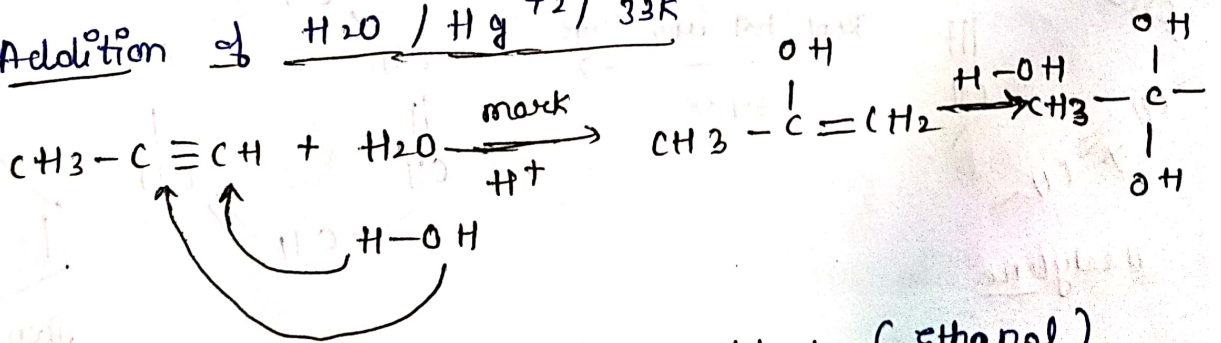 Addition of H2O / Hg+2 / 33K
CH3 - C ≡ CH + H2O mark H+ CH3 - C = CH2 H-OH CH3 - C -
OH OH
OH
H-OH
(ethanol)